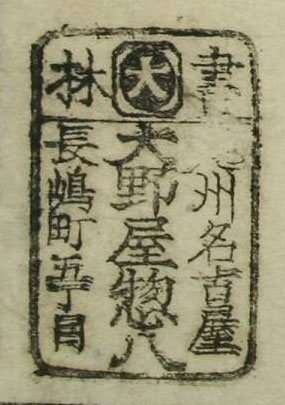 書 大 林
尾州名古屋
大野屋惣八
長嶋町五丁目